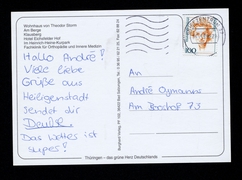 Wohnhaus von Theodor Storm
Am Berge
Klausberg
Hotel Eichsfelder Hof
im Heinrich-Heine-Kurpark
Fachklinik für Orthopädie und Innere Medizin
Hallo André!
Viele liebe
Grüße aus
Heiligenstadt
sendet dir
Das Wetter ist
super!
100
An
André
Am
73
Thüringen - das grüne Herz Deutschlands